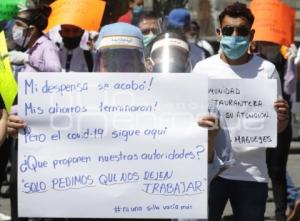 Mi despensa se acabó!
Mis ahorros terminaron!
Pero el covid-19 sigue aquí
¿Que proponen nuestras autoridades?
"SOLO PEDIMOS QUE NOS DEJEN
TRABAJAR"
#ni una silla vacía más
MUNIDAD
TAURANTERA
SU ATENCION.
MAGUEYES